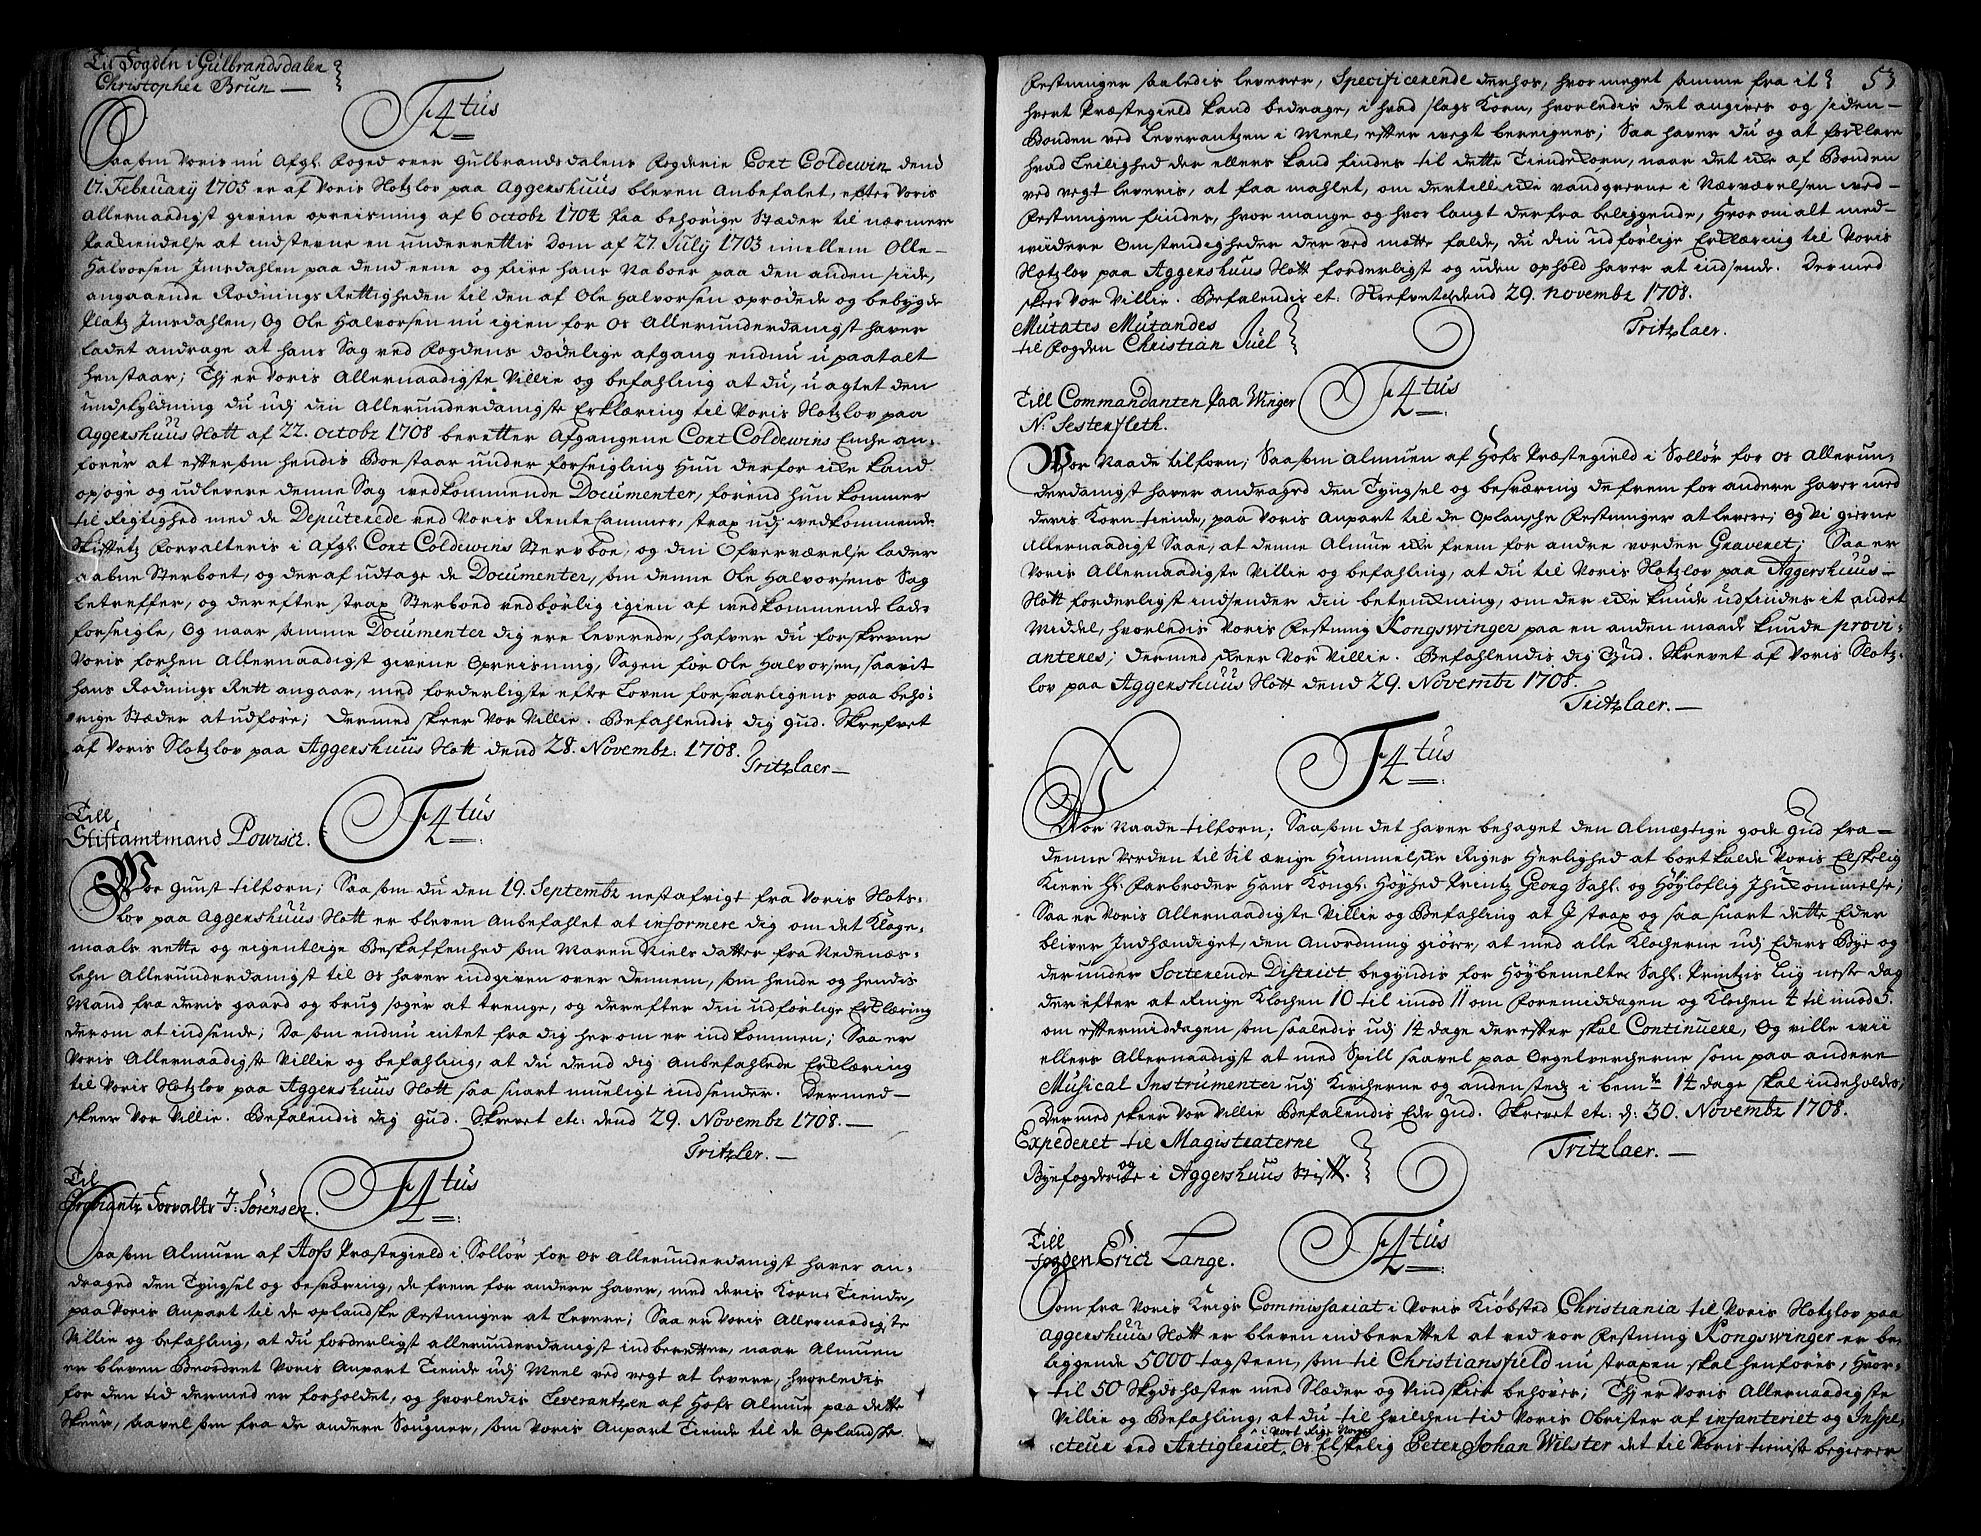 Til Fogden i Gulbrandsdalen
Christopher Brun —
F4tus
Saasom Voris nu Afgl. Foged over Gulbrandsdalens Fogderie Cort Coldewin dend
17. February 1705 er af Voris Slotzlov paa Aggershuus bleven Anbefalet, efter Voris
allernaadigst givene opreisning af 6 octobr 1704 paa behörige Stæder til nærmere
Paakiendelse at indstevne en underrettis Dom af 27. July 1703 imellem Olle
Halvorsen Imsdahlen paa dend eene og fiire hans Naboer paa den anden side,
angaaende Rödnings Rettigheden til den af Ole Halvorsen oprödede og bebygde
Platz Imsdahlen, Og Ole Halvorsen nu igien for Os Allerunderdanigst haver
ladet andrage at hans Sag ved Fogdens dödelige afgang endnu upaatalt
henstaar; Thj er Voris Allernaadigste Villie og befahling at du, uagtet den
undskyldning du udj din Allerunderdanigste Erklæring til Voris Slotzlov paa
Aggershuus Slott af 22. octobr 1708 beretter Afgangene Cort Coldewins Enche an-
förer at eftersom hendis Boe staar under forseigling Hun derfor icke kand
opsöge og udlevere denne Sag wedkommende Documenter, förend hun kommer
til Rigtighed med de Deputerede ved Voris Rente Cammer, strax udj wedkommende
Skiftetz Forvalteris i Afgl. Cort Coldewins Stervboe, og din Ofverværelse lader
aabne Sterboet, og deraf udtage de Documenter, som denne Ole Halvorsens Sag
betreffer, og derefter strax Sterboed vedbörlig igien af wedkommende lader
forseigle, Og naar samme Documenter dig ere Leverede, hafver du forskrevne
Voris forhen Allernaadigst givene Opreisning, Sagen for Ole Halvorsen, saavit
hans Rödnings Rett angaar, med forderligste efter Loven forsvarligens paa behö-
rige Stæder at udföre; Dermed skeer Vor Villie. Befahlendis dig Gud. Skrefvet
af Voris Slotzlov paa Aggershuus Slott dend 28. Novembr: 1708.
Tritzlaer —
Till
Stiftamtmand Pousin.
F4tus
Vor Gunst tilforn; Saasom du den 19. Septembr nestafvigt fra Voris Slots-
lov paa Aggershuus Slott er bleven Anbefahlet at informere dig om det Klage-
maals rette og eigentlige Beskaffenhed som Maren Niels datter fra Nedenæs-
Lehn Allerunderdanigst til Os haver indgiven over Dennem, som hende og hendis
Mand fra deris gaard og brug söger at trenge, og derefter din udförlige Erklæring
derom at indsende; Da som endnu intet fra dig herom er indkommen; Saa er
Voris Allernaadigste Villie og befahling, at du dend dig Anbefahlede Erklæring
til Voris Slotzlov paa Aggershuus Slott saa snart mueligt indsender. Dermed
skeer Vor Villie. Befalendis dig Gud. Skrevet etc: dend 29. Novembr 1708. —
Tritzler. —
Til
Proviantz Forvaltr J: Sörensen.
F4tus
Saasom Almuen af Hofs Præstegield i Sollör for Os Allerunderdanigst haver an-
draged den Tyngsel og besværing, de frem for andere haver, med deris Korn Tiende,
paa Voris Anpart til de oplandske Festninger at Levere; Saa er Voris Allernaadigste
Villie og befahling, at du forderligst allerunderdanigst indberetter, naar Almuen
er bleven Beordret Voris Anpart Tiende udj Meel ved vegt at levere, hvorledis
for den tid dermed er forholdet, og hvorledis Leverantzen af Hofs Almue paa dette
Skeer, saavel som fra de andere Sougner, som Voris Anpart Tiende til de Oplandske
53
Festninger saaledis leverer, Specificerende derhos, hvormeget samme fra it
hvert Præstegield kand bedrage, i hvad slags Korn, hvorledis det angives og siden
Bonden ved Leverantzen i Meel, efter wegt beregnes; Saa haver du og at forklare
hvad Leilighed der ellers kand findes til dette Tiende Korn, naar det icke af Bonden
ved vegt leveris, at faa mahlet, om dertill icke vandqverne i Nærværelsen wed
Festningen findes, hvor mange og hvor langt derfra beliggende, Hvorom alt med
wiidere Omstendigheder der ved motte falde, du din udförlige Erklæring til Voris
Slotzlov paa Aggershuus Slott forderligst og uden ophold haver at indsende. Dermed
skeer Vor Villie. Befalendis et: Skrefvet dend 29. Novembr 1708.
Tritzlaer.
Mutates Mutandes
til Fogden Christian Juel
F4tus
Till Commandanten paa Winger
N: Sestenfleth.
Vor Naade tilforn; Saasom Almuen af Hofs Præstegield i Sollör for Os Allerun-
derdanigst haver andraged den Tyngsel og besværing de frem for andere haver med
deris Korn tiende, paa Voris Anpart til de Oplanske Festninger at levere; Og Vi gierne
Allernaadigst Saae, at denne Almue icke frem for andre vorder Graveret; Saa er
Voris Allernaadigste Villie og befahling, at du til Voris Slotzlov paa Aggershuus
Slott forderligst indsender din betenckning, om der icke kunde udfindes it andet
Middel, hvorledis Voris Festning Kongswinger paa en anden maade kunde provi-
anteres; Dermed skeer Vor Villie. Befahlendis dig Gud. Skrevet af Voris Slotz-
lov paa Aggershuus Slott dend 29. Novembr 1708.
Tritzlaer. —
F4tus
Vor Naade tilforn; Saasom det haver behaget den Almægtige gode Gud fra
denne Verden til Sit ævige Himmelske Riges Herlighed at bortkalde Voris Elskelig
Kiere Hr. Farbroder Hans Kongl: Höyhed Printz Georg Sahl. og Höyloflig Jhukommelse;
Saa er Voris Allernaadigste Villie og Befahling at I strax og saa snart dette Eder
bliver Indhændiget, den Anordning giörer, at med alle Klocherne udj Eders Bye og
derunder Sorterende District begyndis for Höybemelte Sahl. Printzis Liig neste dag
der efter at Ringe Klochen 10 til imod 11 om Formiddagen og Klochen 4 til imod 5.
om eftermiddagen som saaledis udj 14 dage derefter skal Continuere, Og ville wii
ellers Allernaadigst at med Spill saavel paa Orgelvercherne som paa andere
Musical Instrumenter udj Kircherne og andensteds i bemte 14 dage skal indeholdes;
Dermed skeer Vor Villie Befalendis Eder Gud. Skrevet etc: d: 30. Novembr 1708.
Tritzlaer. —
Expederet til Magistraterne
og
Byefogderne i Aggershuus Stift.
Till
Fogden Erich Lange.
F4tus
Som fra Voris Krigs Commissariat i Voris Kiöbsted Christiania til Voris Slotzlov paa
Aggershuus Slott er bleven indberettet at ved vor Festning Kongswinger er be-
liggende 5000 tagsteen, som til Christiansfield nu straxen skal henföres, Hvor-
til 50 Skydshæster med Slæder og Vindskier behöves; Thj er Voris Allernaadigste
Villie og Befahling, at du til hvilchen tid Voris Obrister af infanteriet og Inspe-
i Vort Rige Norge
cteur ved Artigleriet, Os Elskelig Peter Johan Wilster det til Voris tieniste begierer